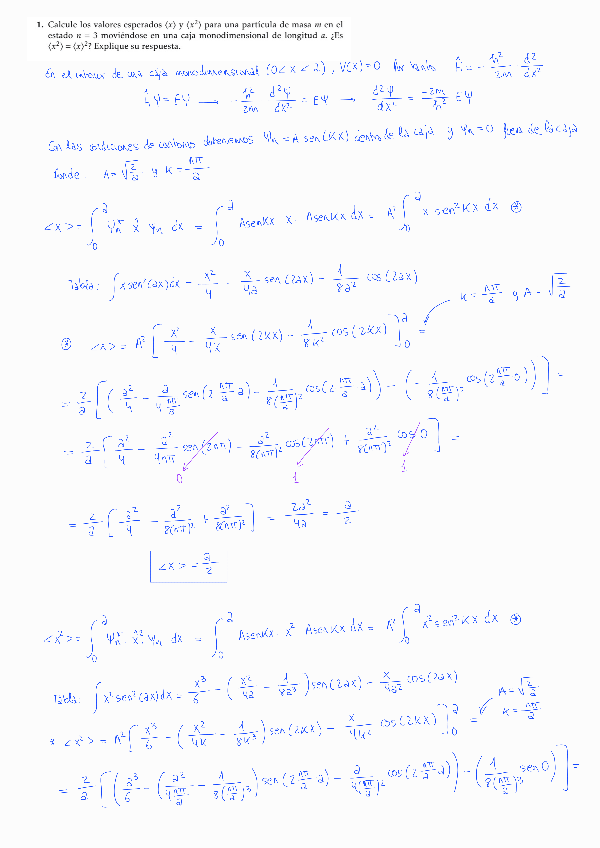 1. Calcule los valores esperados ⟨x⟩ y ⟨x²⟩ para una partícula de masa m en el
estado n = 3 moviéndose en una caja monodimensional de longitud a. ¿Es
⟨x²⟩ = ⟨x⟩²? Explique su respuesta.
En el interior de una caja monodimensional (0 < x < a), V(x) = 0 Por tanto Ĥ = - ħ²/2m d²/dx²
ĤΨ = EΨ → - ħ²/2m d²Ψ/dx² = EΨ → d²Ψ/dx² = -2m/ħ² EΨ
En las condiciones de contorno obtenemos Ψn = A sen(Kx) dentro de la caja y Ψn = 0 fuera de la caja
Donde A = √(2/a) y K = nπ/a
<x> = ∫₀ᵃ Ψn* x̂ Ψn dx = ∫₀ᵃ A sen Kx · x · A sen Kx dx = A² ∫₀ᵃ x sen² Kx dx ⊛
Tabla: ∫ x sen²(ax)dx = x²/4 - x/4a sen(2ax) - 1/8a² cos(2ax)
K = nπ/a y A = √(2/a)
⊛ <x> = A² [ x²/4 - x/4K sen(2Kx) - 1/8K² cos(2Kx) ]₀ᵃ =
= 2/a [ ( a²/4 - a/(4 nπ/a) sen(2 nπ/a a) - 1/8(nπ/a)² cos(2 nπ/a a) ) - ( - 1/8(nπ/a)² cos(2 nπ/a 0) ) ] =
= 2/a [ a²/4 - a²/4nπ sen(2nπ) - a²/8(nπ)² cos(2nπ) + a²/8(nπ)² cos 0 ] =
0 1 1
= 2/a [ a²/4 - a²/8(nπ)² + a²/8(nπ)² ] = 2a²/4a = a/2
<x> = a/2
<x²> = ∫₀ᵃ Ψn* x̂² Ψn dx = ∫₀ᵃ A sen Kx · x² · A sen Kx dx = A² ∫₀ᵃ x² sen² Kx dx ⊛
Tabla: ∫ x² sen²(ax)dx = x³/6 - ( x²/4a - 1/8a³ ) sen(2ax) - x/4a² cos(2ax)
A = √(2/a)
K = nπ/a
* <x²> = A² [ x³/6 - ( x²/4K - 1/8K³ ) sen(2Kx) - x/4K² cos(2Kx) ]₀ᵃ =
= 2/a [ ( a³/6 - ( a²/(4 nπ/a) - 1/8(nπ/a)³ ) sen(2 nπ/a a) - a/4(nπ/a)² cos(2 nπ/a a) ) - ( 1/8(nπ/a)³ sen 0 ) ] =